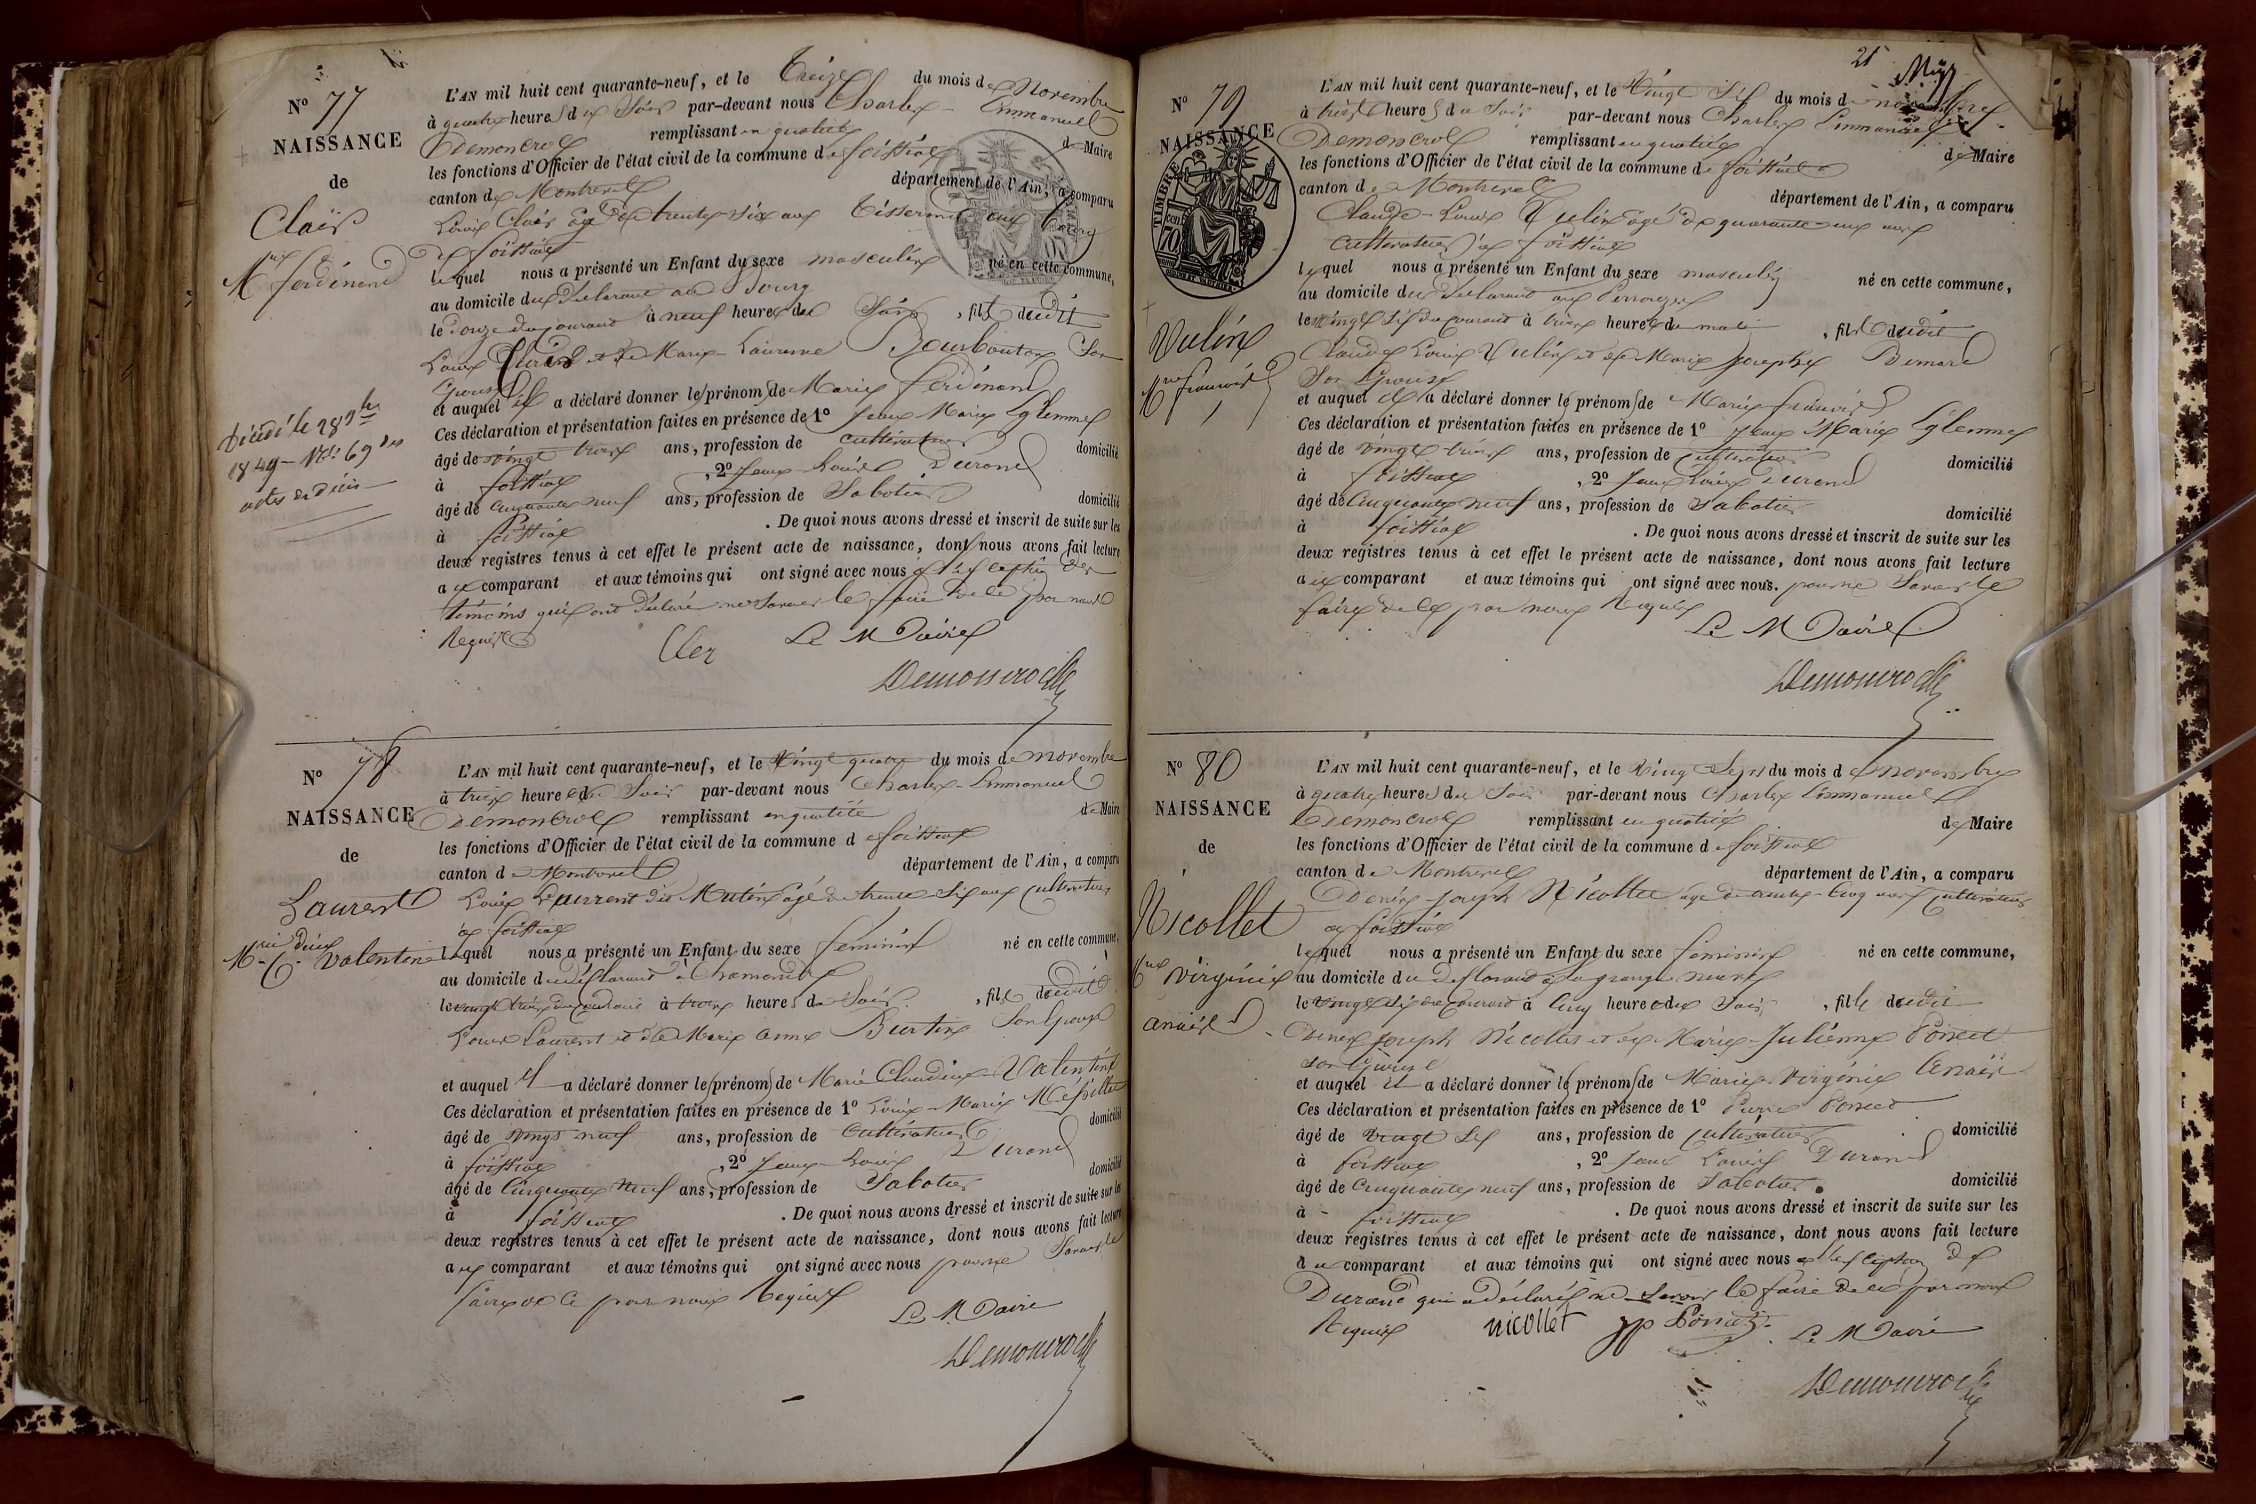 N° 77
NAISSANCE
de
Clair
M. ferdinand
Décédé le 28 9bre
1849 - N° 69 des
actes de décès
L'AN mil huit cent quarante-neuf, et le treize du mois de Novembre
à quatre heures du Soir par-devant nous Charles Emmanuel
Demoncrol remplissant en qualité de Maire
les fonctions d'Officier de l'état civil de la commune de foissiat
canton de Montrevel département de l'Ain, a comparu
Louis Clair agé de trente-six ans Tisserand au bourg
de foissiat
lequel nous a présenté un Enfant du sexe masculin né en cette commune,
au domicile du déclarant au bourg
le douze du courant à neuf heures du Soir, fils dudit
Louis Clair et de Marie Laurence Bourbouton Son
Epouse
et auquel il a déclaré donner les prénoms de Marie ferdinand
Ces déclaration et présentation faites en présence de 1° Jean Marie Glenne
âgé de vingt trois ans, profession de cultivateur domicilié
à foissiat, 2° Jean-Louis Durand
âgé de cinquante neuf ans, profession de Sabotier domicilié
à foissiat. De quoi nous avons dressé et inscrit de suite sur les
deux registres tenus à cet effet le présent acte de naissance, dont nous avons fait lecture
au comparant et aux témoins qui ont signé avec nous à l'exception des
témoins qui ont déclaré ne savoir le faire de ce par nous
Requis
Cler Le Maire
N° 78
NAISSANCE
de
Laurent
Mie Dine Valentine
L'AN mil huit cent quarante-neuf, et le Vingt quatre du mois de novembre
à trois heures du Soir par-devant nous Charles-Emmanuel
Demoncrol remplissant en qualité de Maire
les fonctions d'Officier de l'état civil de la commune de foissiat
canton de Montrevel département de l'Ain, a comparu
Louis Laurent dit Mutin agé de trente six ans Cultivateur
à foissiat
lequel nous a présenté un Enfant du sexe feminin né en cette commune,
au domicile du déclarant à
le vingt trois du courant à trois heures du Soir, fille dudit
Louis Laurent et de Marie anne Burtin Son Epouse
et auquel il a déclaré donner les prénoms de Marie Claudine Valentine
Ces déclaration et présentation faites en présence de 1° Louis-Marie
âgé de vingt neuf ans, profession de Cultivateur domicilié
à foissiat, 2° Jean-Louis Durand
âgé de Cinquante neuf ans, profession de Sabotier domicilié
à foissiat. De quoi nous avons dressé et inscrit de suite sur les
deux registres tenus à cet effet le présent acte de naissance, dont nous avons fait lecture
au comparant et aux témoins qui ont signé avec nous pour ne Savoir le
faire de ce par nous Requis
Le Maire
21
N° 79
NAISSANCE
TIMBRE
70
Vulin
Mie francois
L'AN mil huit cent quarante-neuf, et le Vingt Six du mois de novembre
à trois heures du Soir par-devant nous Charles Emmanuel
Demoncrol remplissant en qualité de Maire
les fonctions d'Officier de l'état civil de la commune de foissiat
canton de Montrevel département de l'Ain, a comparu
Claude-Louis Vulin agé de quarante-un ans
cultivateur à foissiat
lequel nous a présenté un Enfant du sexe masculin né en cette commune,
au domicile du déclarant aux
le vingt six du courant à trois heures du matin, fils dudit
Claude Louis Vulin et de Marie Josephe
Son Epouse
et auquel il a déclaré donner les prénoms de Marie francois
Ces déclaration et présentation faites en présence de 1° Jean Marie Glenne
âgé de vingt trois ans, profession de Cultivateur domicilié
à foissiat, 2° Jean Louis Durand
âgé de Cinquante neuf ans, profession de Sabotier domicilié
à foissiat. De quoi nous avons dressé et inscrit de suite sur les
deux registres tenus à cet effet le présent acte de naissance, dont nous avons fait lecture
au comparant et aux témoins qui ont signé avec nous. pour ne Savoir le
faire de ce par nous Requis
Le Maire
N° 80
NAISSANCE
de
Nicollet
Virginie
anaïs
L'AN mil huit cent quarante-neuf, et le Vingt Sept du mois de novembre
à quatre heures du Soir par-devant nous Charles Emmanuel
Demoncrol remplissant en qualité de Maire
les fonctions d'Officier de l'état civil de la commune de foissiat
canton de Montrevel département de l'Ain, a comparu
Denis Joseph Nicollet agé de trente-cinq ans Cultivateur
à foissiat
lequel nous a présenté un Enfant du sexe feminin né en cette commune,
au domicile du déclarant à la grange neuve
le vingt six du courant à Cinq heures du Soir, fille dudit
Denis Joseph Nicollet et de Marie-Julienne Poncet
son Epouse
et auquel il a déclaré donner les prénoms de Marie Virginie Anaïs
Ces déclaration et présentation faites en présence de 1° Pierre Poncet
âgé de vingt six ans, profession de Cultivateur domicilié
à foissiat, 2° Jean Louis Durand
âgé de Cinquante neuf ans, profession de Sabotier domicilié
à foissiat. De quoi nous avons dressé et inscrit de suite sur les
deux registres tenus à cet effet le présent acte de naissance, dont nous avons fait lecture
au comparant et aux témoins qui ont signé avec nous à l'exception de
Durand qui a déclaré ne Savoir le faire de ce par nous
Requis nicollet jp Poncet Le Maire